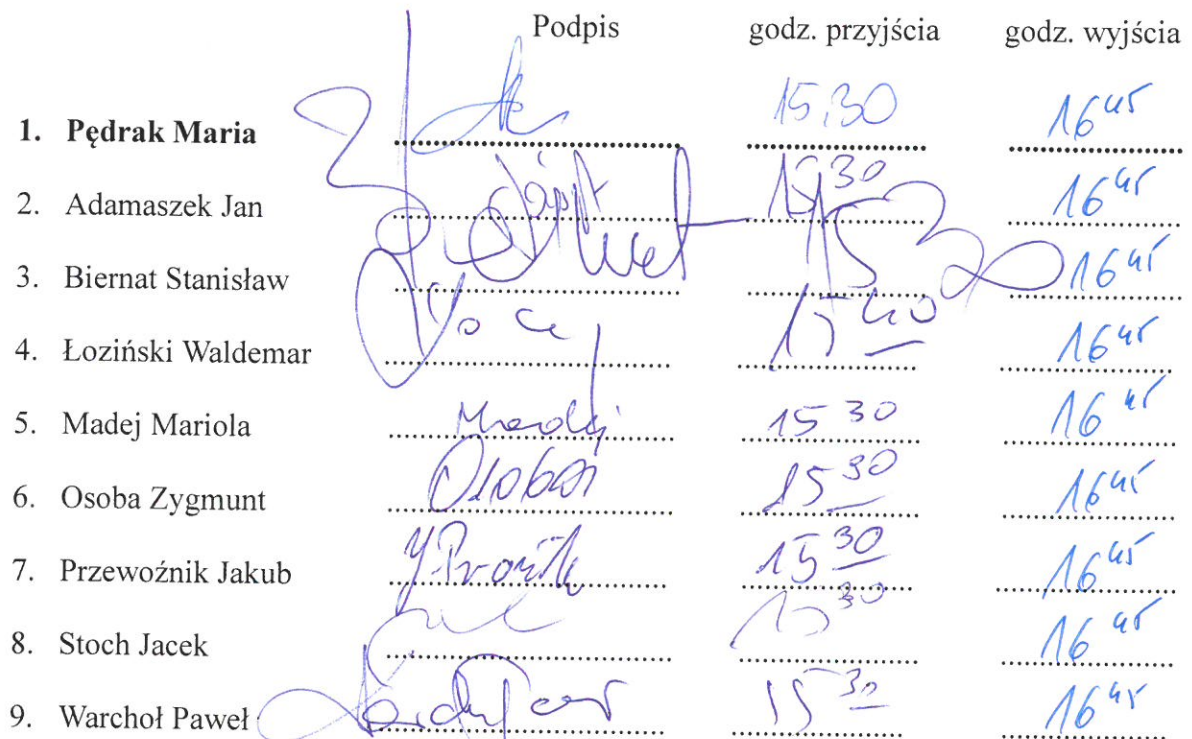 Podpis godz. przyjścia godz. wyjścia
1. Pędrak Maria 15,30 16 45
2. Adamaszek Jan 15 30 16 45
3. Biernat Stanisław 15 30 16 45
4. Łoziński Waldemar 15 40 16 45
5. Madej Mariola Madej 15 30 16 45
6. Osoba Zygmunt Osoba 15 30 16 45
7. Przewoźnik Jakub 15 30 16 45
8. Stoch Jacek 15 30 16 45
9. Warchoł Paweł 15 30 16 45